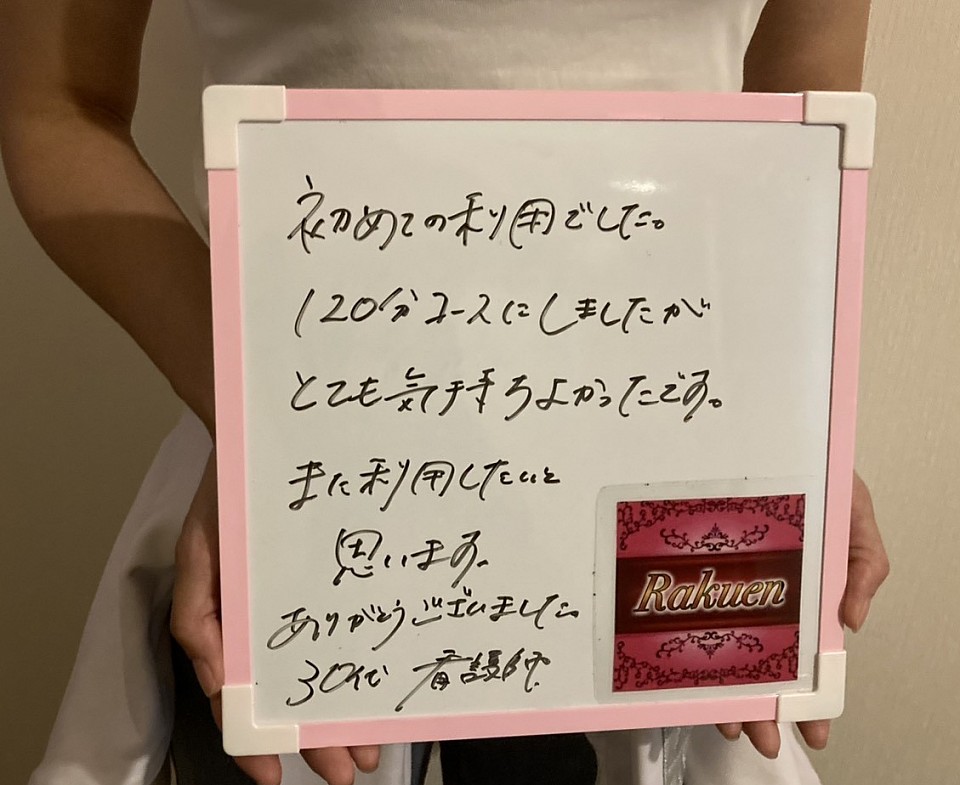 初めての利用でした。
120分コースにしましたが
とても気持ちよかったです。
また利用したいと
思います。
ありがとうございました。
30代 看護師
Rakuen